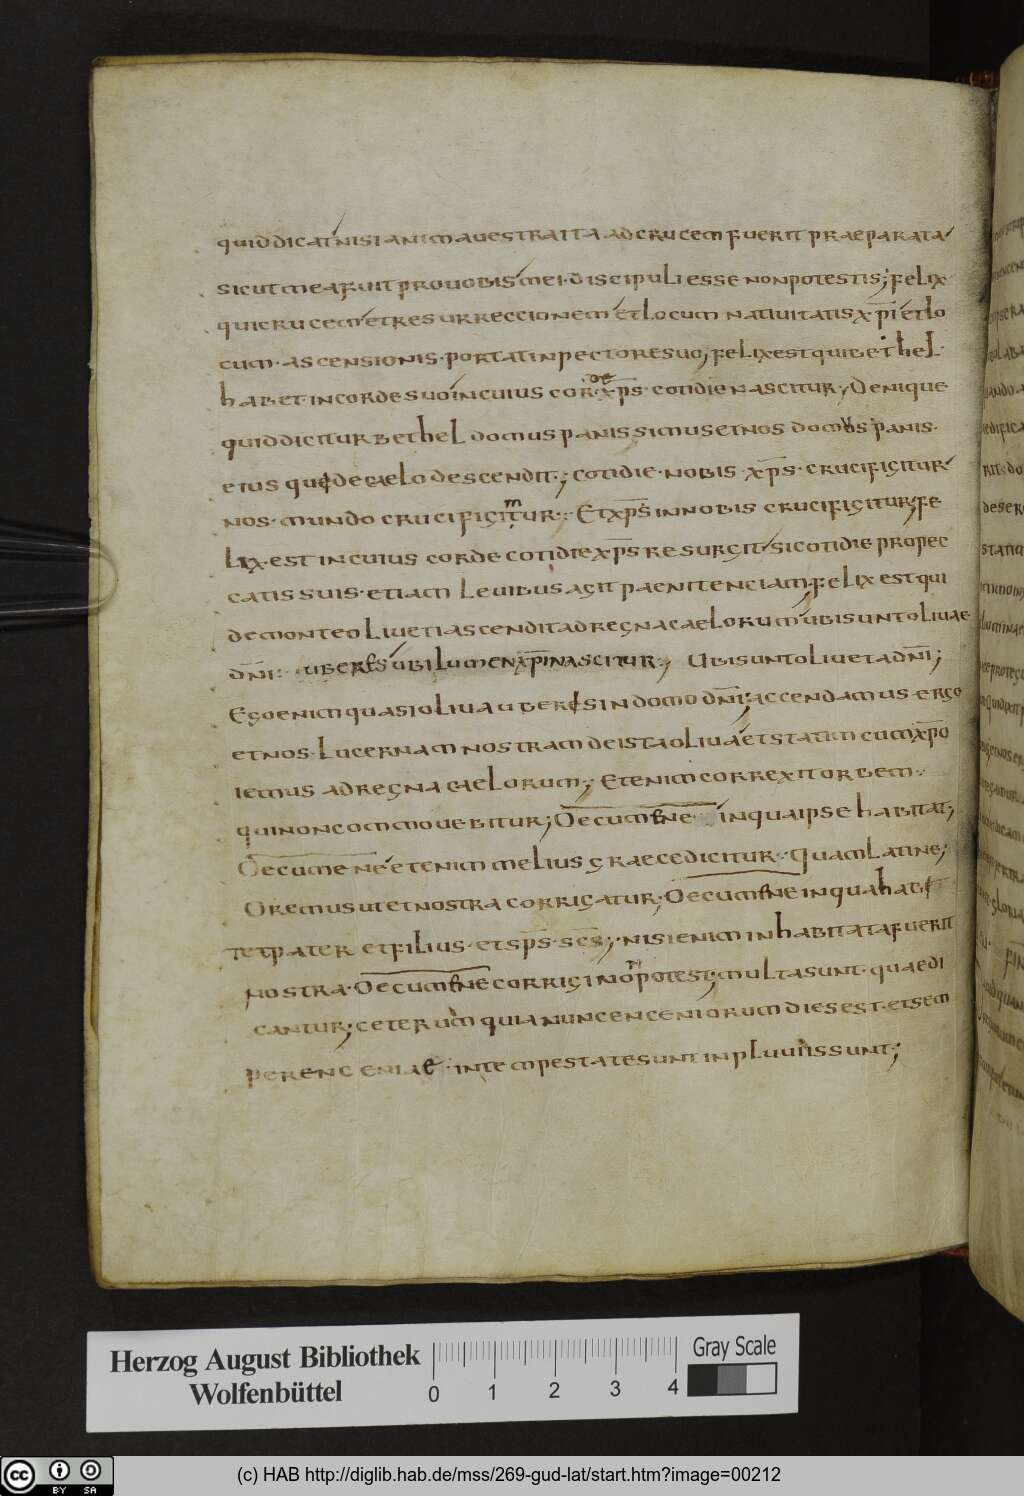 quid dicat nisi anima uestra ita ad crucem fuerit praeparata
sicut mea fuit pro uobis mei discipuli esse non potestis; felix
qui crucem et resurreccionem et locum natiuitatis xp̅i et lo
cum ascensionis portat in pectore suo; felix est qui bethel
habet in corde suo in cuius cor de xp̅s cotidie nascitur; Denique
quid dicitur bethel domus panis simus et nos domus panis
eius qui de caelo descendit; cotidie nobis xp̅s crucifigitur
nos mundo crucifigimur. Et xp̅s in nobis crucifigitur; fe
lix est in cuius corde cotidie xp̅s resurgit si cotidie pro pec
catis suis etiam leuibus agit paenitenciam; felix est qui
de monte oliueti ascendit ad regna caelorum ubi sunt oliuae
dn̅i. uberes ubi lumen xp̅i nascitur; Ubi sunt oliueta dn̅i;
Ego enim quasi oliua uberes in domo dn̅i; accendamus ergo
et nos lucernam nostram de ista oliua et statim cum xp̅o
iemus ad regna caelorum; Etenim correxit orbem
qui non commouebitur; Oecumene in qua ipse habitat;
Oecumene etenim melius graece dicitur. Quam latine;
Oremus ut et nostra corrigatur; Oecumene in qua habet
tet pater et filius et sp̅s sc̅s; nisi enim inhabitata fuerit
nostra Oecumene corrigi non potest; multa sunt quae di
cantur; ceterum quia nunc enceniorum dies est et sem
per encenia e in tempestate sunt in pluuiis sunt;
Herzog August Bibliothek
Wolfenbüttel
0 1 2 3 4
Gray Scale
cc BY SA
(c) HAB http://diglib.hab.de/mss/269-gud-lat/start.htm?image=00212